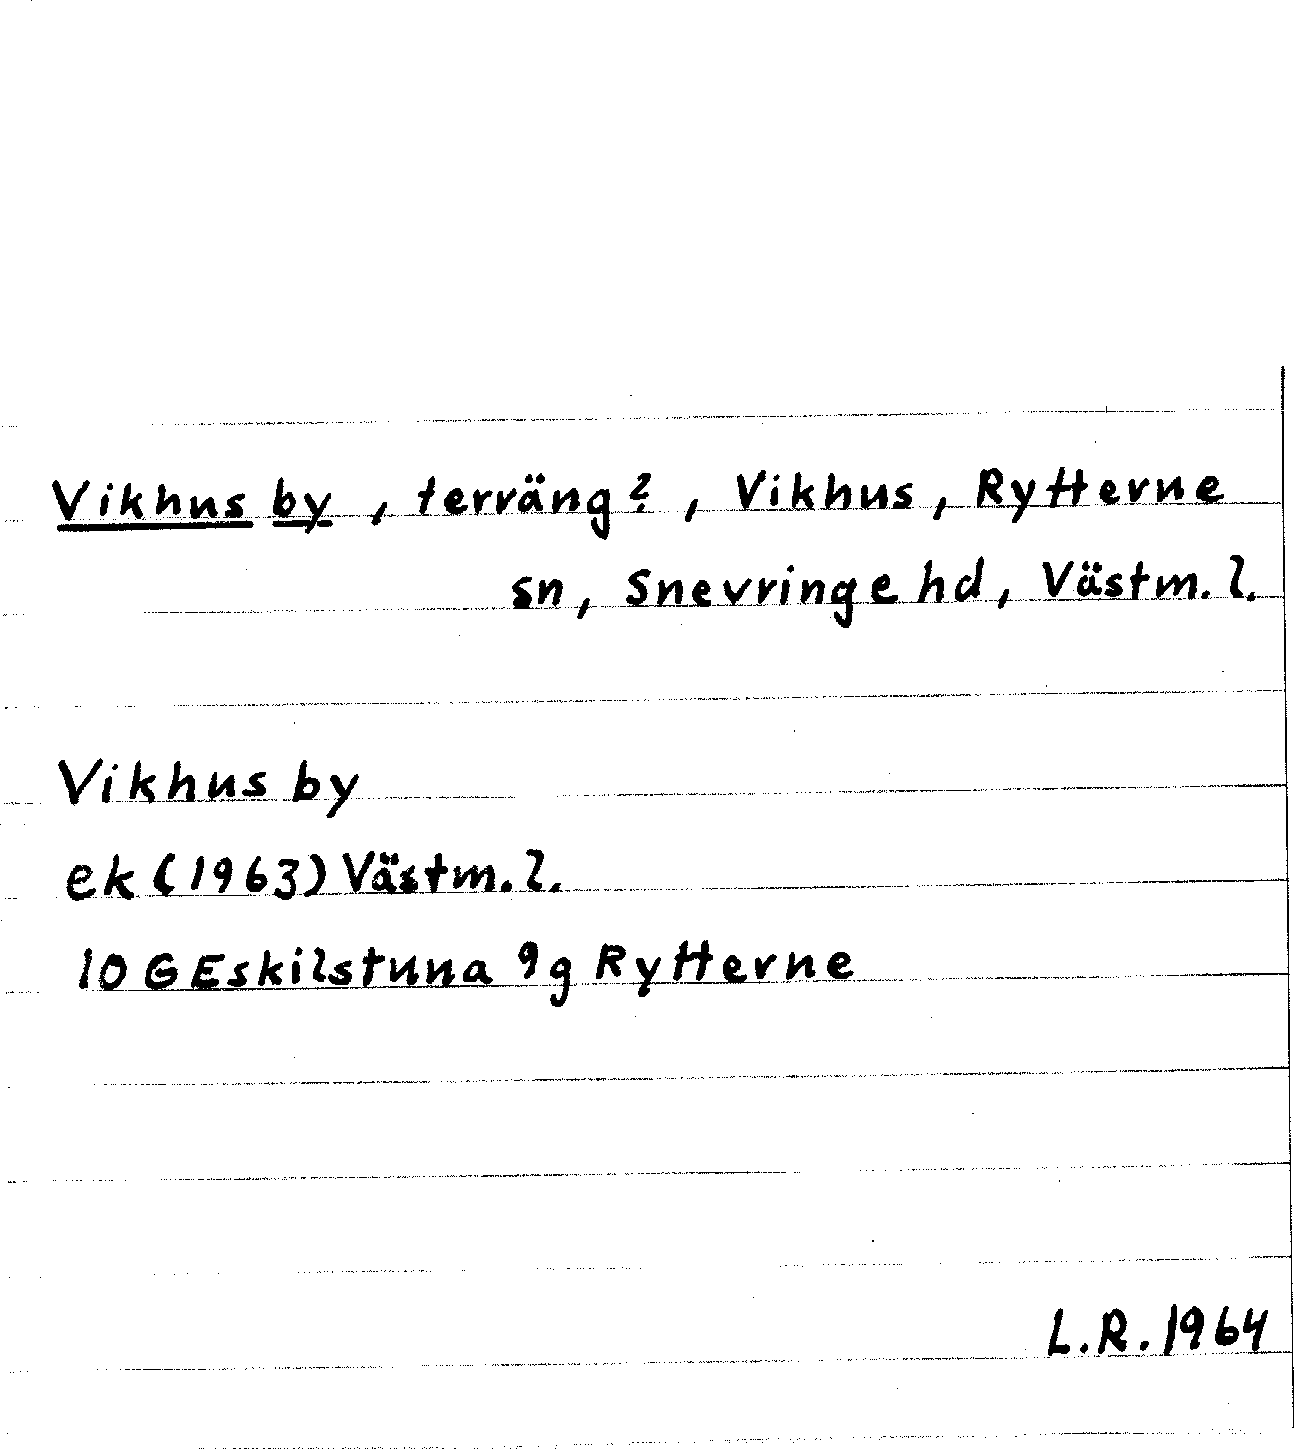 Vikhus by, terräng?, Vikhus, Rytterne
sn, Snevringe hd, Västm. l.
Vikhus by
ek (1963) Västm. l.
10 G Eskilstuna 9g Rytterne
L.R. 1964